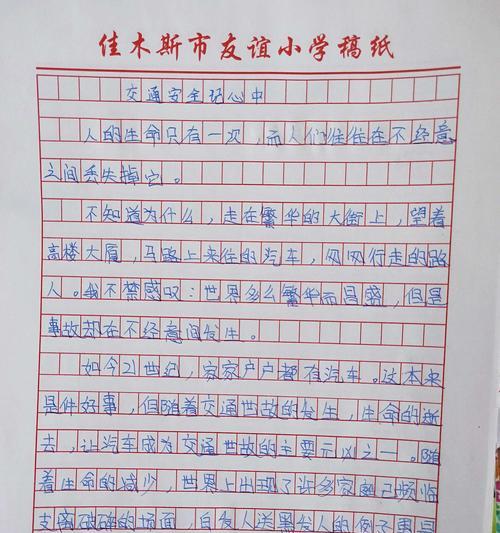 佳木斯市友谊小学稿纸
交通安全记心中
人的生命只有一次，而人们往往在不经意
之间丢失掉它。
不知道为什么，走在繁华的大街上，望着
高楼大厦，马路上来往的汽车，匆匆行走的路
人。我不禁感叹：世界多么繁华而昌盛，但是
事故却在不经意间发生。
如今21世纪，家家户户都有汽车。这本来
是件好事，但随着交通世故的发生，生命的逝
去，让汽车成为交通世故的主要元凶之一。随
着生命的减少，世界上出现了许多家庭已频临
支离破碎的场面，白发人送黑发人的例子更是